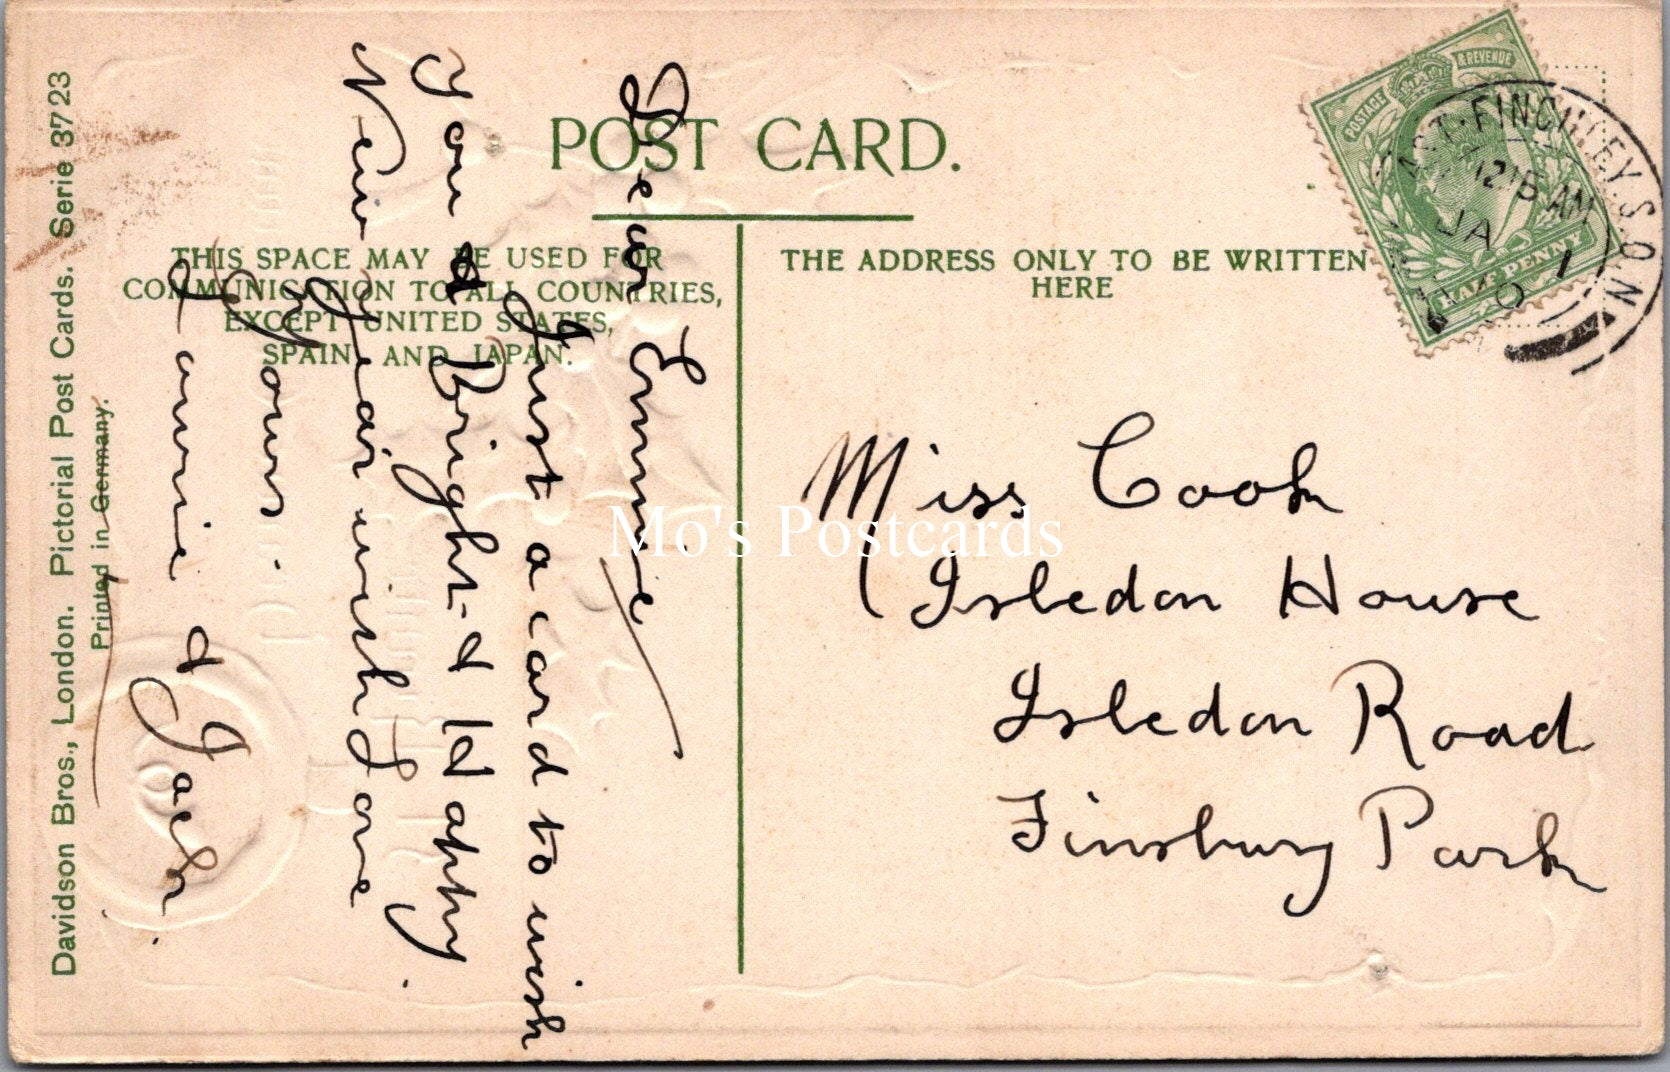 Davidson Bros., London. Pictorial Post Cards. Serie 3723
Printed in Germany.
POST CARD.
THIS SPACE MAY BE USED FOR
COMMUNICATION TO ALL COUNTRIES,
EXCEPT UNITED STATES,
SPAIN AND JAPAN.
THE ADDRESS ONLY TO BE WRITTEN
HERE
POSTAGE & REVENUE
HALF PENNY
EAST·FINCHLEY.S.O.N.
12 15 AM
JA 1
Dear Emmie
Just a card to wish
you a Bright & Happy
New Year with Love
Yours
Lawrie & Jack.
Miss Cook
Isledon House
Isledon Road
Finsbury Park
Mo's Postcards